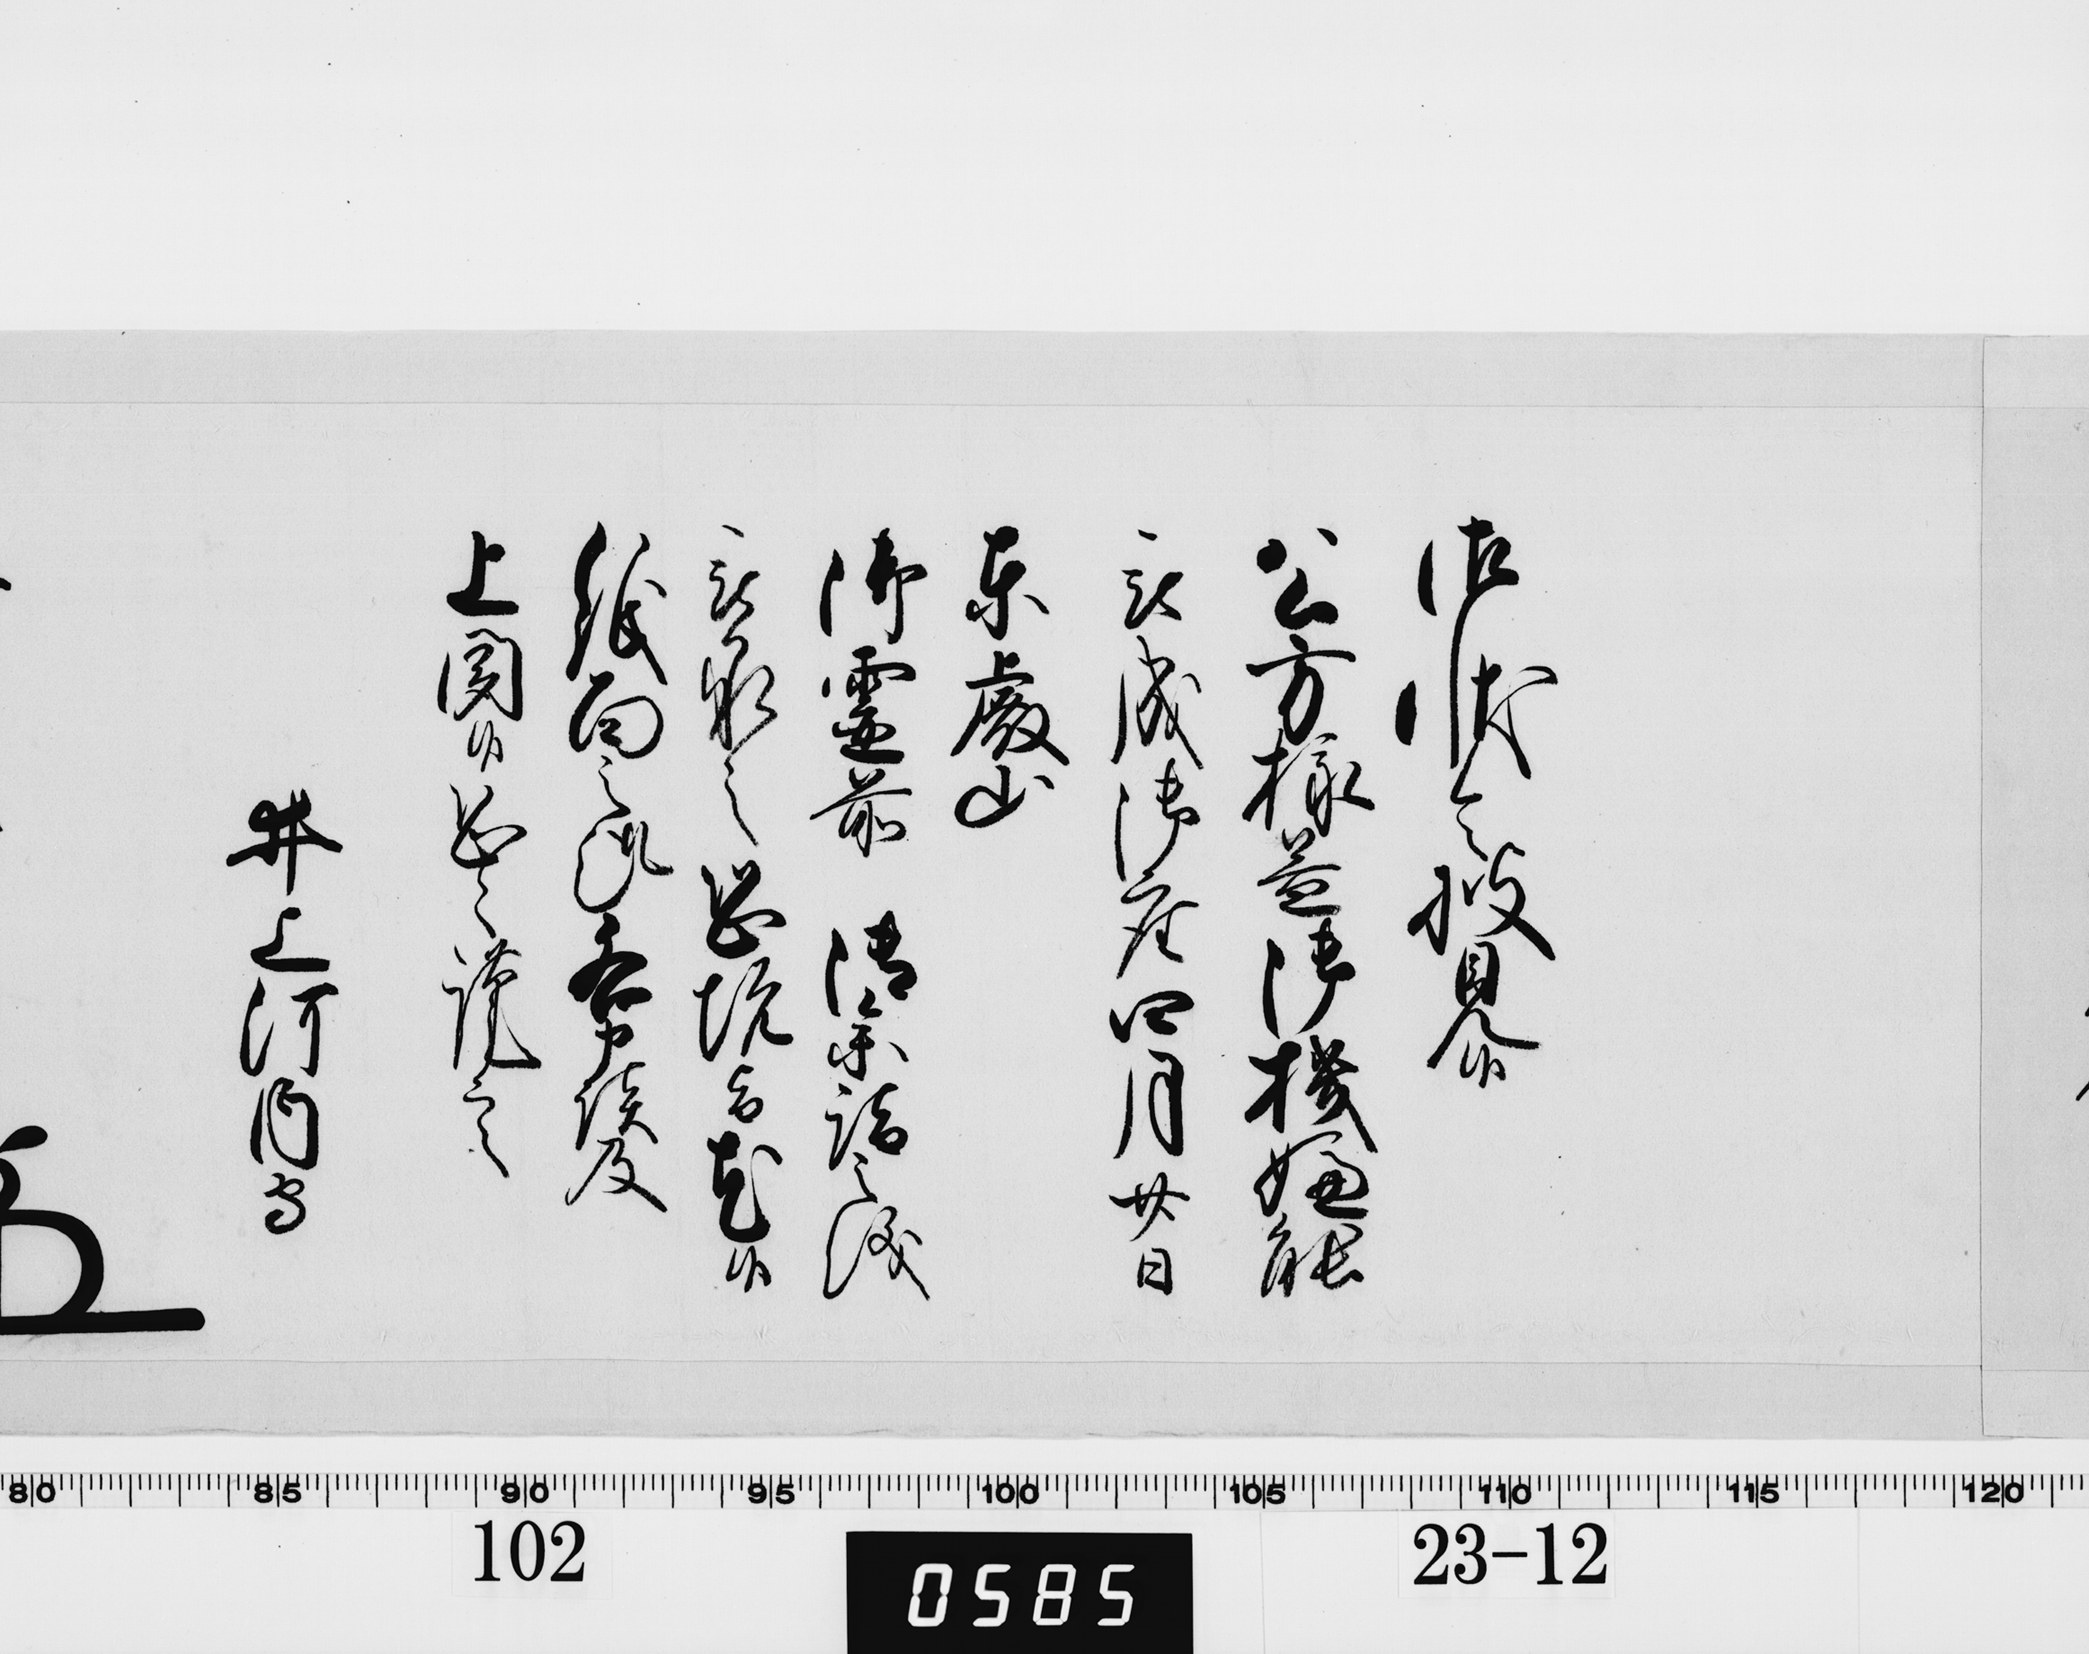 御状令披見候
公方様益御機嫌能
被成御座四月廿日
東叡山
御霊前 御参詣之儀
被承之恐悦旨尤候
紙面之趣各申談及
上聞候恐々謹言
井上河内守
80 85 90 95 100 105 110 115 120
102
0585
23-12